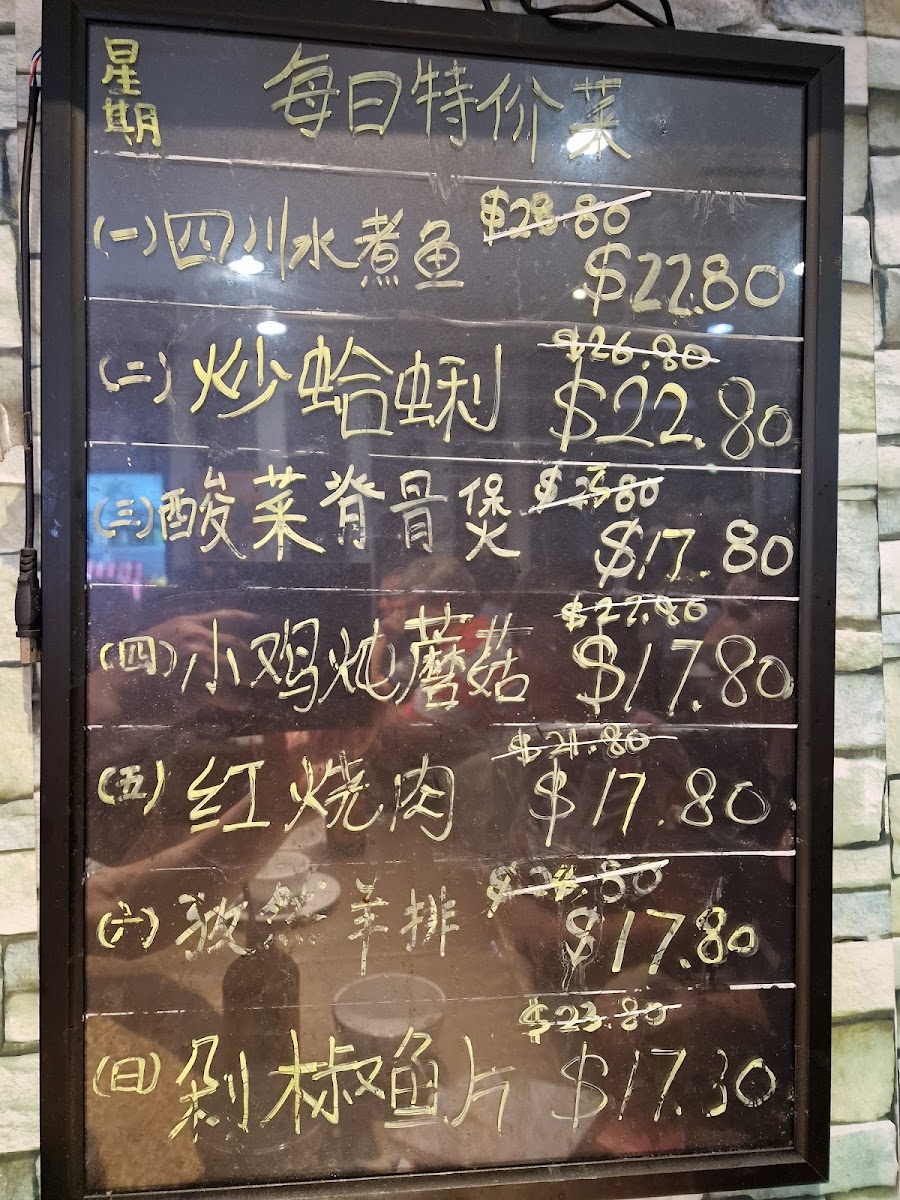 星期
每日特价菜
(一)四川水煮鱼 $28.80
$22.80
(二)炒蛤蜊 $26.80
$22.80
(三)酸菜脊骨煲 $23.80
$17.80
(四)小鸡炖蘑菇 $27.80
$17.80
(五)红烧肉 $21.80
$17.80
(六)孜然羊排
$17.80
(日)剁椒鱼片 $23.80
$17.30